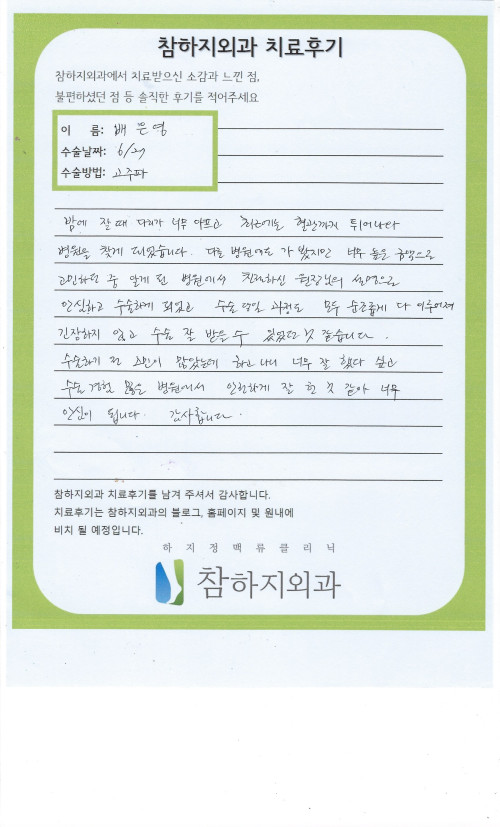 참하지외과 치료후기
참하지외과에서 치료받으신 소감과 느낀 점,
불편하셨던 점 등 솔직한 후기를 적어주세요
이 름: 배은영
수술날짜: 6/27
수술방법: 고주파
밤에 잘 때 다리가 너무 아프고 최근에는 혈관까지 튀어나와
병원을 찾게 되었습니다. 다른 병원에도 가 봤지만 너무 높은 금액으로
고민하던 중 알게 된 병원에서 친절하신 원장님의 설명으로
안심하고 수술하게 되었고 수술 당일 과정도 모두 순조롭게 다 이루어져
긴장하지 않고 수술 잘 받을 수 있었던 것 같습니다.
수술하기 전 고민이 많았는데 하고 나니 너무 잘 했다 싶고
수술 경험 많은 병원에서 안전하게 잘 한 것 같아 너무
안심이 됩니다. 감사합니다.
참하지외과 치료후기를 남겨 주셔서 감사합니다.
치료후기는 참하지외과의 블로그, 홈페이지 및 원내에
비치 될 예정입니다.
하지정맥류클리닉
참하지외과